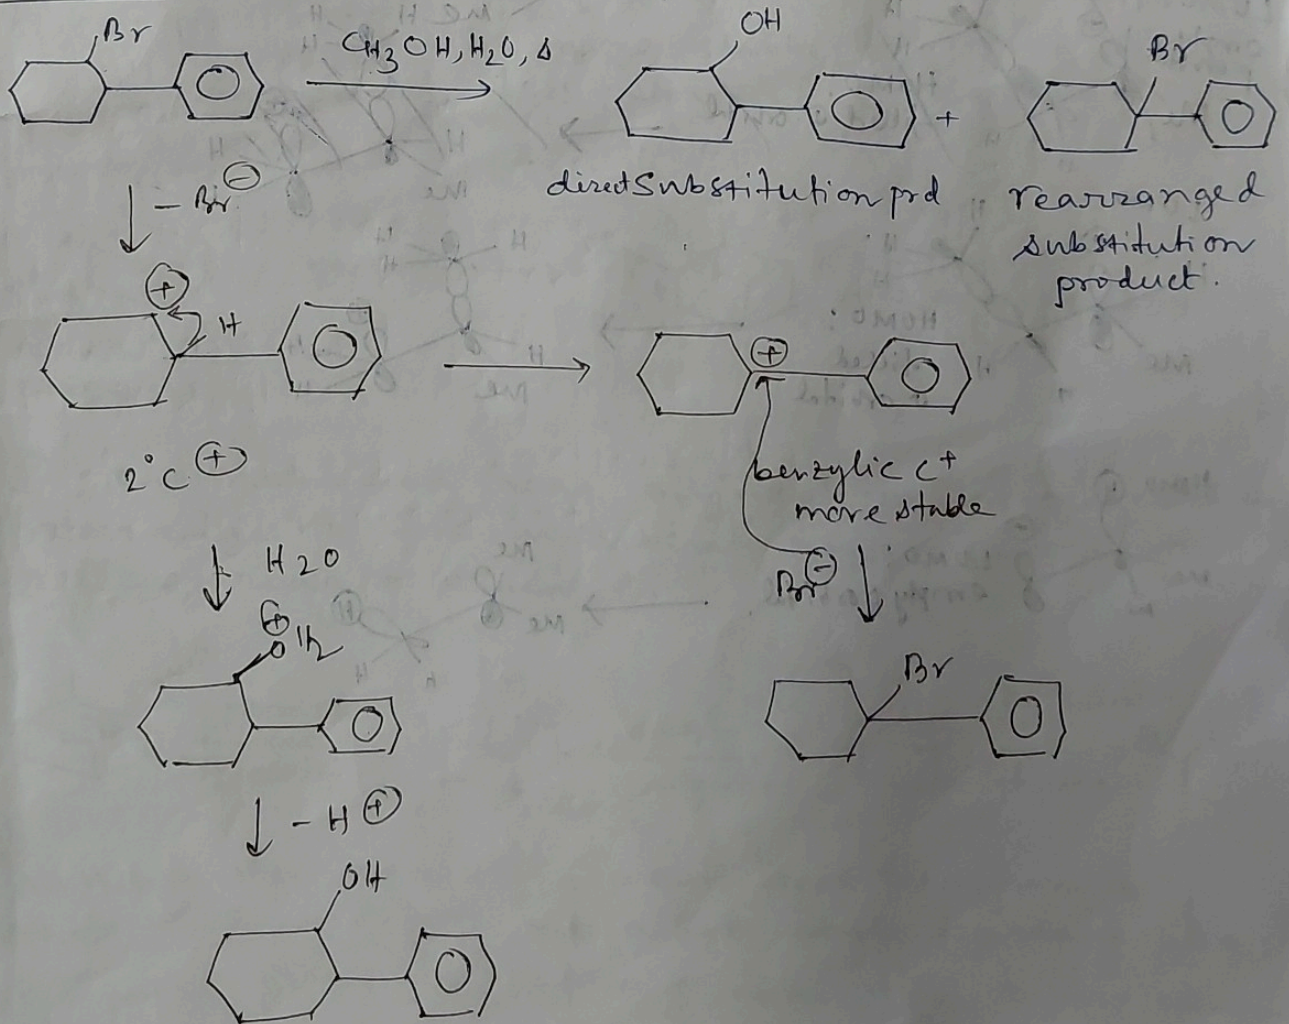 Br
CH3OH, H2O, Δ
OH
+
Br
- Br⊖
direct Substitution prd
rearranged
substitution
product.
⊕
H
⊕
2° C⊕
benzylic C+
more stable
H2O
Br⊖
⊕
OH2
Br
- H⊕
OH